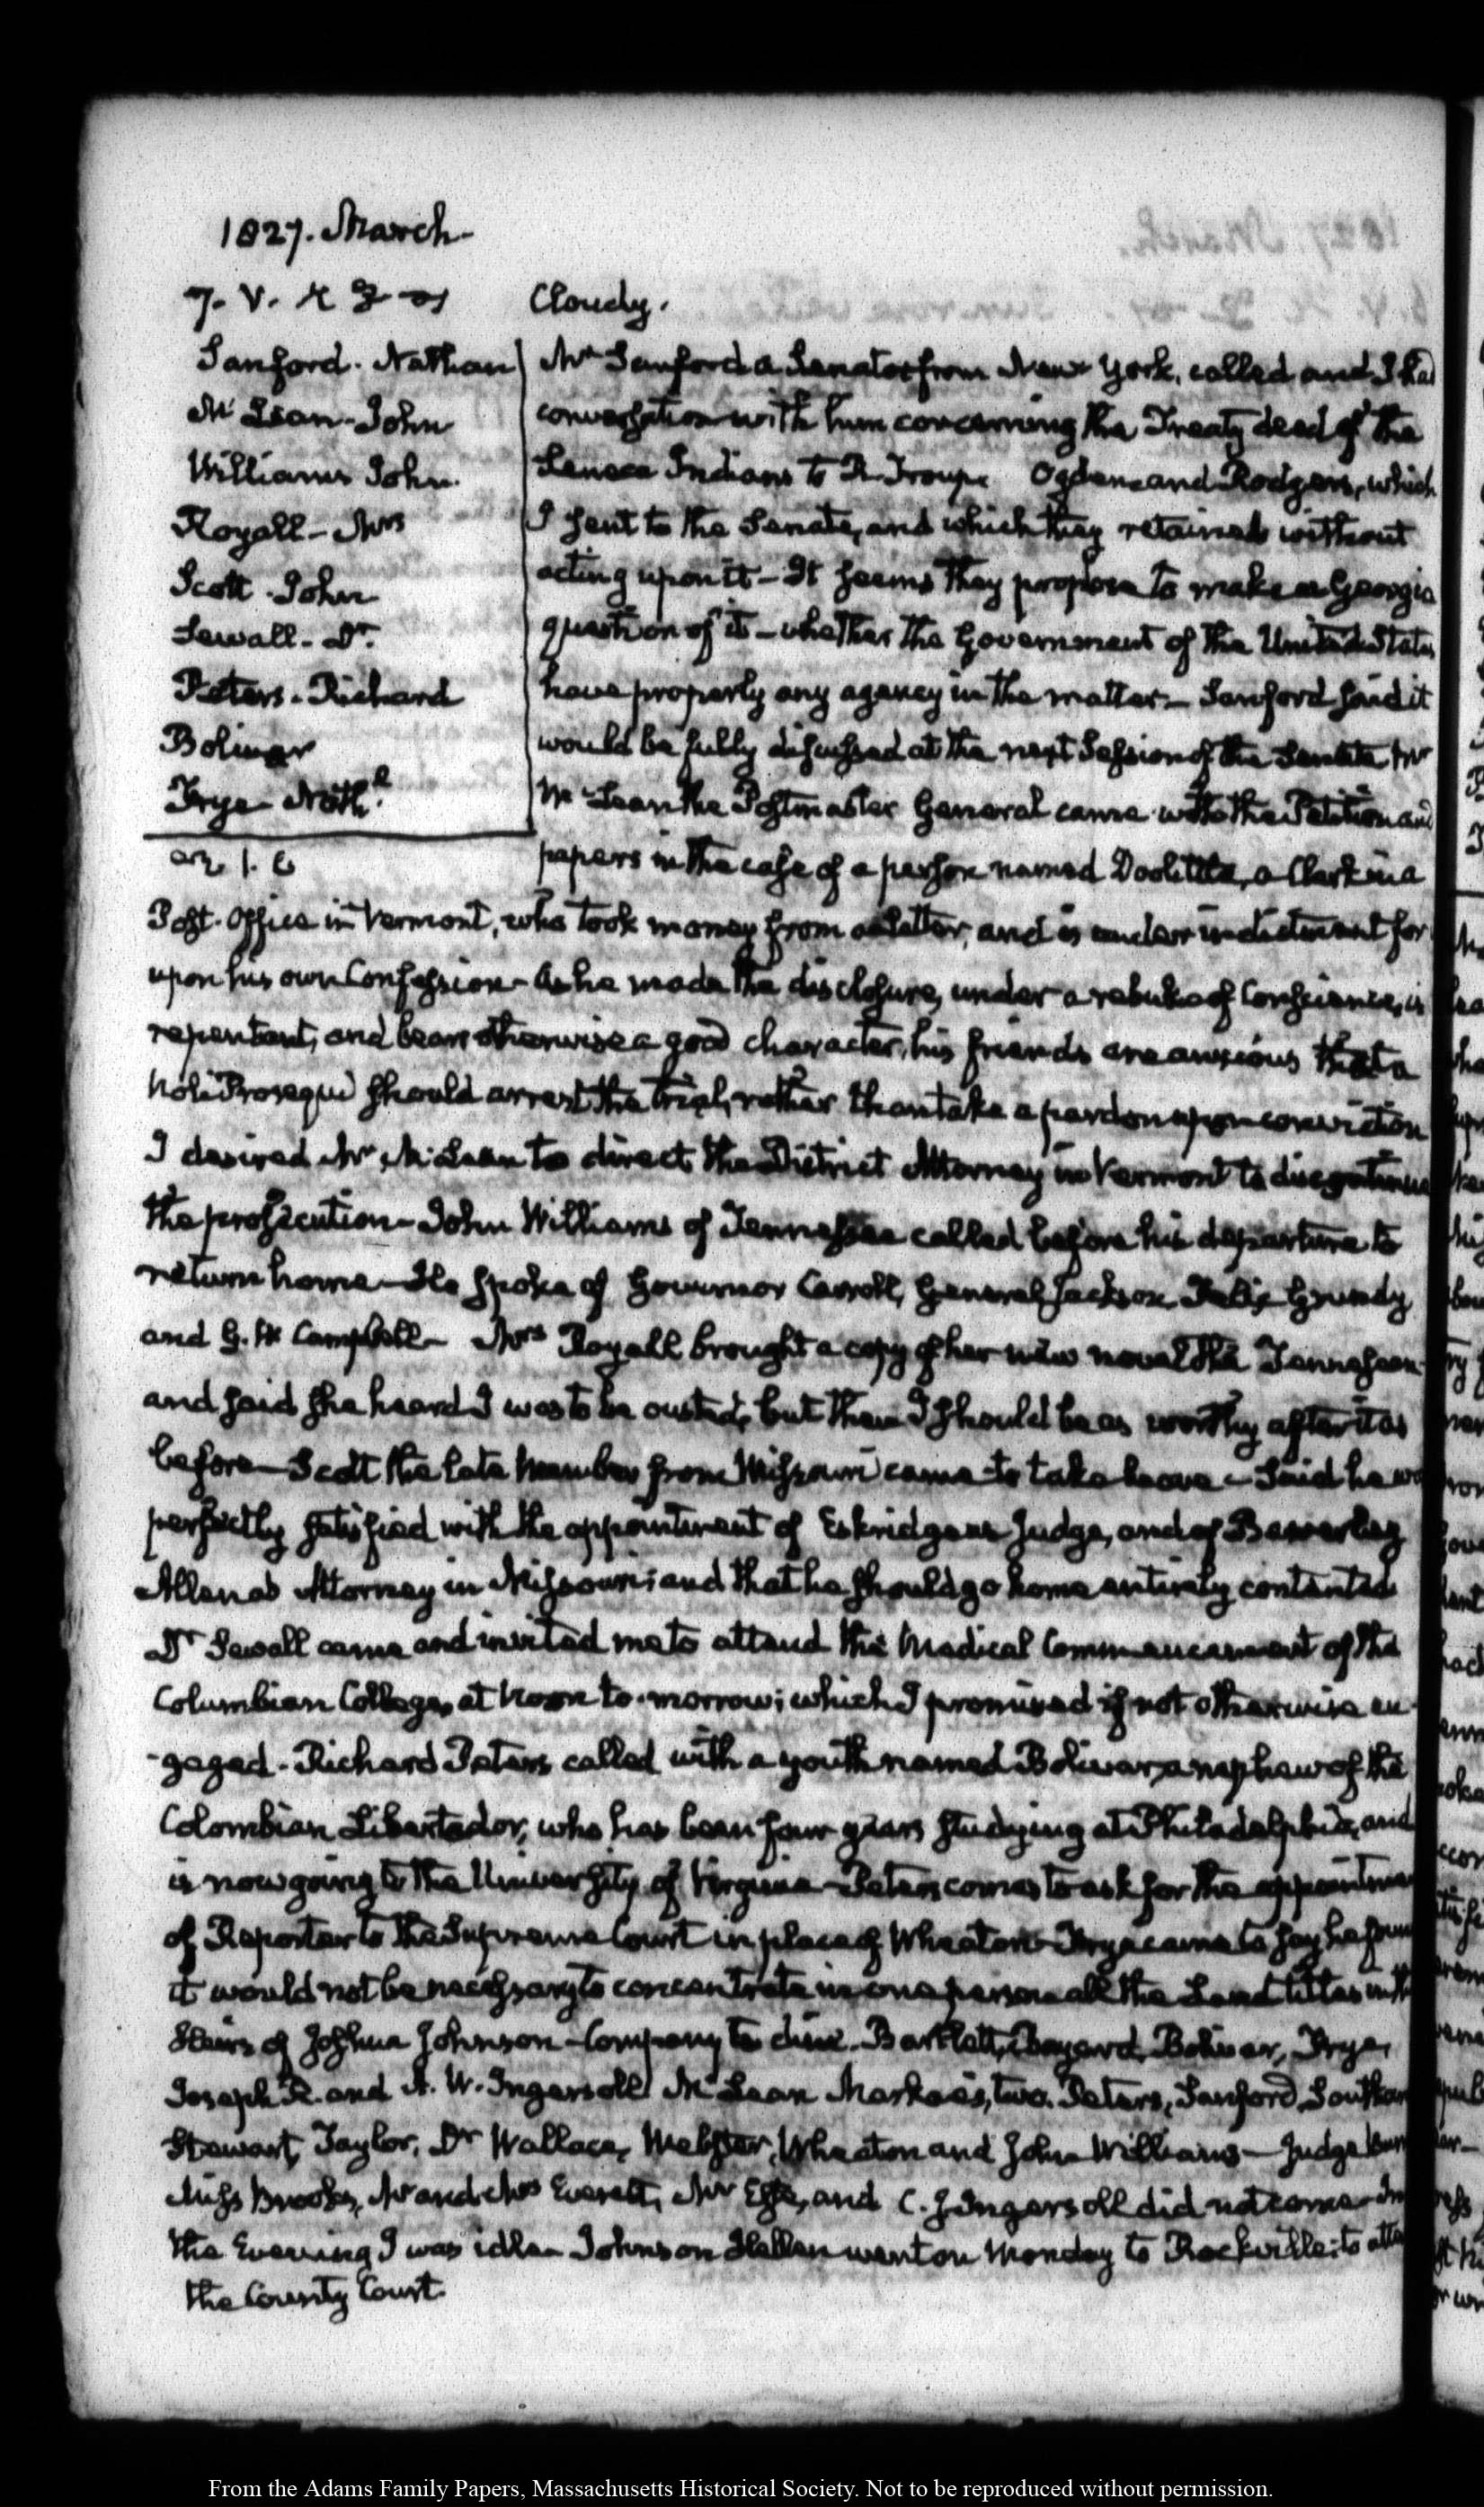 1827. March-
7. V. Cloudy.
Sanford. Nathan
McLean. John
Williams John.
Royall- Mrs
Scott. John
Sewall- Dr.
Peters. Richard
Bolivar
Frye Nathl.
Mr Sanford a Senator from New York, called and I had
conversation with him concerning the Treaty deed of the
Seneca Indians to R. Troup. Ogden and Rodgers, which
I sent to the Senate, and which they retained without
acting upon it- It seems they propose to make a Georgia
question of it- whether the Government of the United States
have properly any agency in the matter- Sanford said it
would be fully discussed at the next Session of the Senate Mr
McLean the Postmaster General came with the Petition and
papers in the case of a person named Doolittle, a Clerk in a
Post-Office in Vermont, who took money from a Letter, and is under indictment for
upon his own Confession- As he made the disclosure, under a rebuke of Conscience, is
repentant, and bears otherwise a good character, his friends are anxious that a
Noli Prosequi should arrest the trial, rather than take a pardon upon conviction
I desired Mr McLean to direct the District Attorney in Vermont to discontinue
the prosecution- John Williams of Tennessee called before his departure to
return home- He spoke of Governor Carroll, General Jackson Felix Grundy
and G. W Campbell- Mrs Royall brought a copy of her new novel the Tennessean
and said she heard I was to be ousted, but then I should be as worthy after it as
before- Scott the late Member from Missouri came to take leave- Said he was
perfectly satisfied with the appointment of Eskridge as Judge, and of Beverley
Allen as Attorney in Missouri; and that he should go home entirely contented
Dr Sewall came and invited me to attend the Medical Commencement of the
Columbian College, at Noon to-morrow; which I promised if not otherwise en
-gaged- Richard Peters called with a youth named Bolivar, a nephew of the
Colombian Libertador, who has been four years studying at Philadelphia, and
is now going to the University of Virginia- Peters comes to ask for the appointment
of Reporter to the Supreme Court in place of Wheaton- Frye came to say he found
it would not be necessary to concentrate in one person all the Land titles in the
Heirs of Joshua Johnson- Company to dine. Bartlett, Bayard, Bolivar, Frye,
Joseph R. and A. W. Ingersoll McLean Markoes, two. Peters, Sanford, Southard
Stewart, Taylor, Dr Wallace, Webster, Wheaton and John Williams- Judge
Miss Brooks, Mr and Mrs Everett, Mr Este, and C. J. Ingersoll did not come- In
the Evening I was idle- Johnson Hellen went on Monday to Rockville: to attend
the County Court.
From the Adams Family Papers, Massachusetts Historical Society. Not to be reproduced without permission.